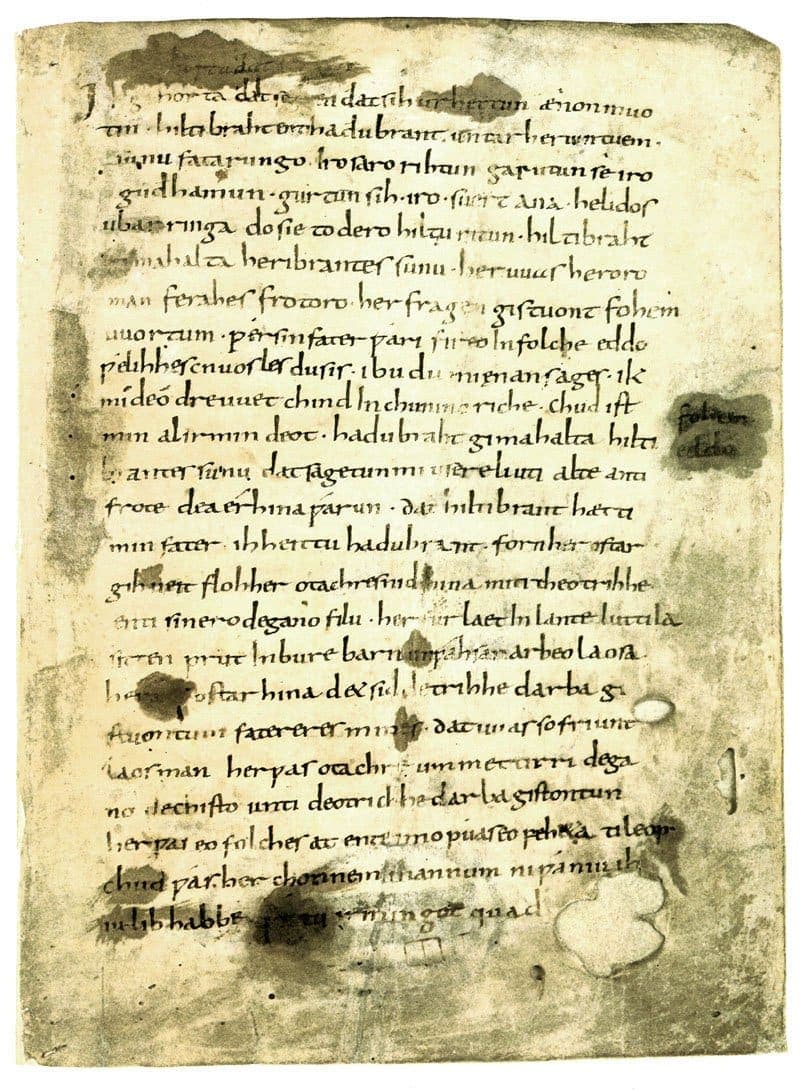 gihorta đat seggen đat sih urhettun ænon muo
tin · hiltibraht enti hađubrant untar heriun tuem ·
sunu fatarungo · iro saro rihtun garutun se iro
guđhamun · gurtun sih · iro · suert ana · helidos
ubar ringa do sie to dero hiltu ritun · hiltibraht
gimahalta heribrantes sunu · her uuas heroro
man ferahes frotoro · her fragen gistuont fohem
uuortum · ƿer sin fater ƿari fireo In folche eddo
ƿelihhes cnuosles du sis · ibu du mi enan sages · ik
mideo dre uuet chind In chunincriche · chud ist
min al irmindeot · hadubraht gimahalta hilti
brantes sunu dat sagetun mi usere liuti alte anti
frote dea érhina ƿarun · dat hiltibrant hætti
min fater · ih heittu hadubrant · forn her ostar
gihueit floh her otachres nid hina miti theotrihhe
enti sinero degano filu · her furlaet In lante luttila
sitten prut In bure barn unƿahsan arbeo laosa
ostar hina det sid detrihhe darba gi
stuontum fatereres mines · dat uuas so friunt
laos man her ƿas otachre ummettirri dega
no dechisto unti deotrichhe darba gistontun
her ƿas eo folches at ente imo ƿuas eo feheta ti leop
chud ƿas her chonnem mannum ni ƿaniu ih
iu lib habbe irmingot quad